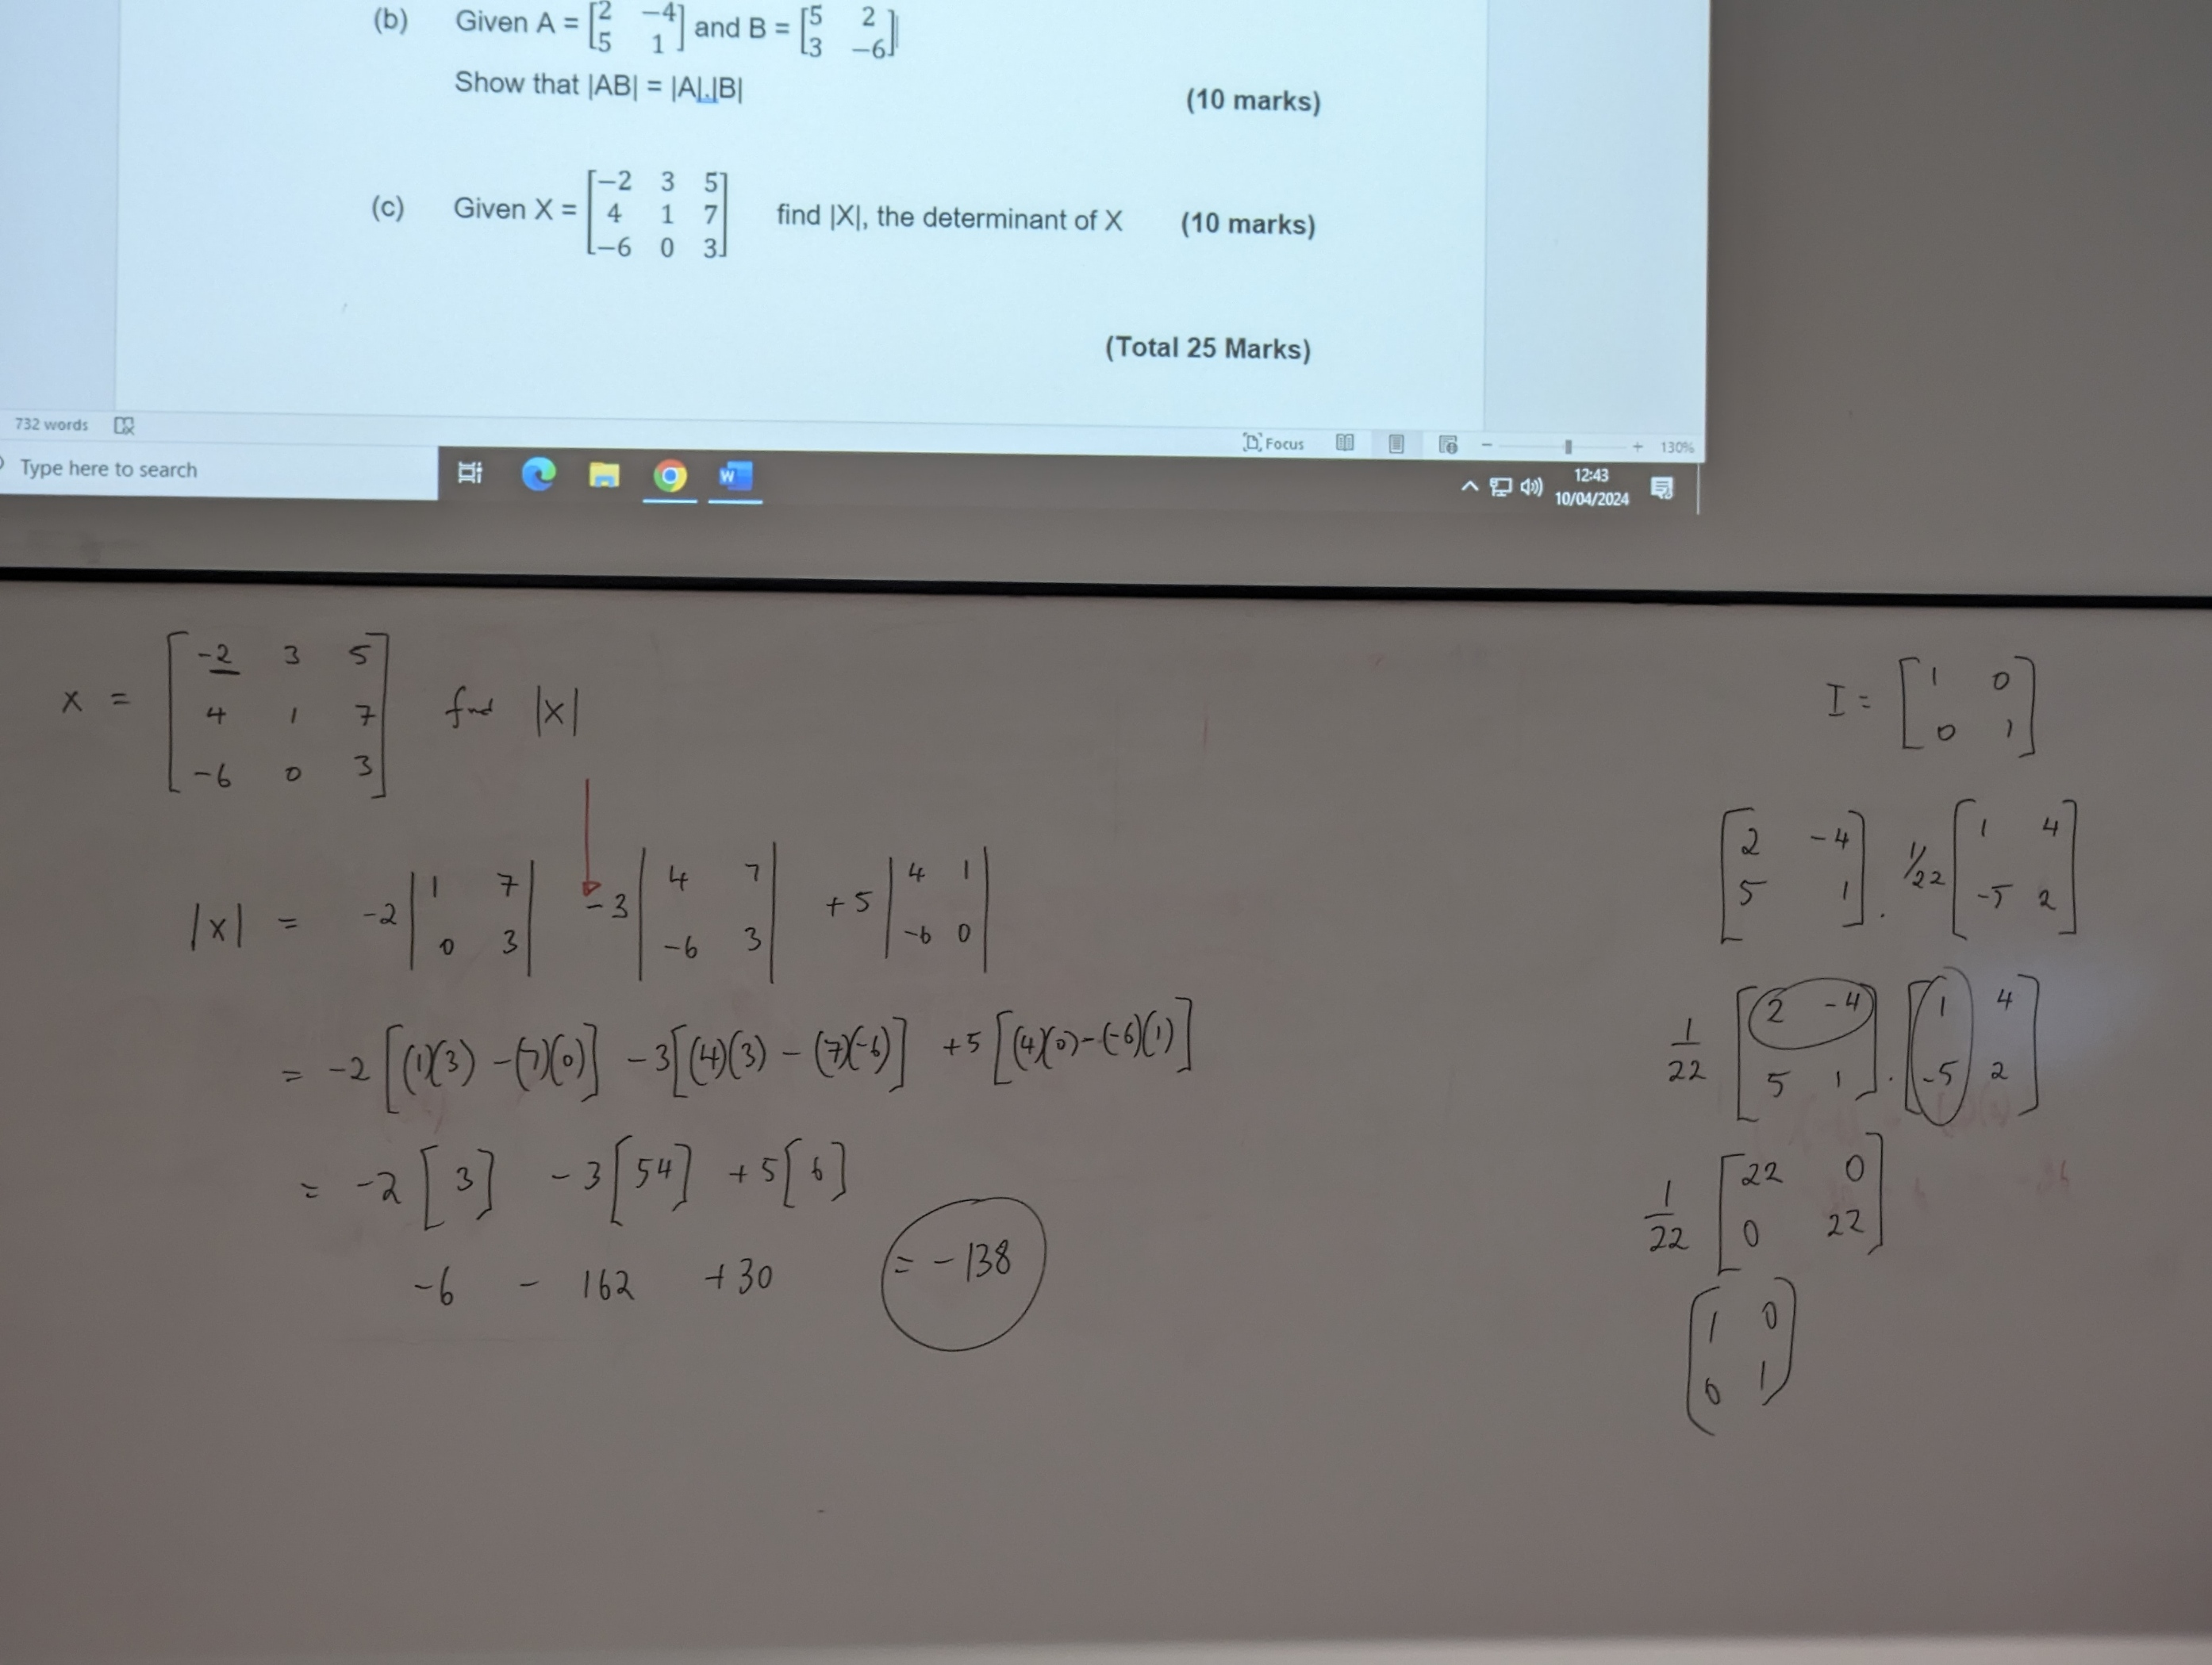 (b) Given A = [2 −4] and B = [5 2]
[5 1] [3 −6]
Show that |AB| = |A|.|B|
(10 marks)
[−2 3 5]
(c) Given X = [4 1 7] find |X|, the determinant of X (10 marks)
[−6 0 3]
(Total 25 Marks)
732 words
Focus
130%
Type here to search
W
12:43
10/04/2024
[-2 3 5]
X = [4 1 7] find |X|
[-6 0 3]
|X| = -2 |1 7| -3 |4 7| +5 |4 1|
|0 3| |-6 3| |-6 0|
= -2 [(1)(3) -(7)(0)] -3[(4)(3) - (7)(-6)] +5 [(4)(0)-(-6)(1)]
= -2 [3] -3 [54] +5 [6]
-6 - 162 +30 = -138
I = [1 0]
[0 1]
[2 -4] . 1/22 [1 4]
[5 1] [-5 2]
1/22 [2 -4] . [1 4]
[5 1] [-5 2]
1/22 [22 0]
[0 22]
[1 0]
[0 1]